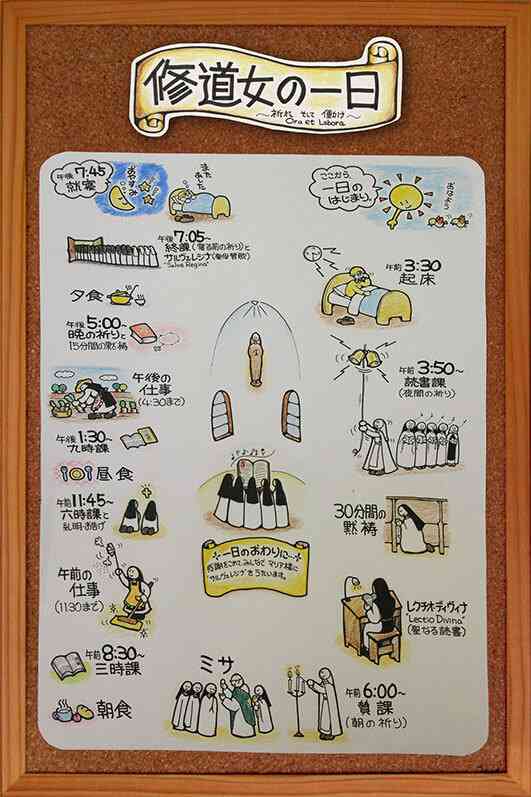 修道女の一日
～祈れ そして 働け～
Ora et Labora
ここから
一日の
はじまり。
おはよう
午前 3:30
起床
午前 3:50～
読書課
(夜間の祈り)
30分間の
黙祷
レクチオ・ディヴィナ
"Lectio Divina"
(聖なる読書)
午前 6:00～
賛課
(朝の祈り)
ミサ
朝食
午前 8:30～
三時課
午前の
仕事
(11:30まで)
午前 11:45～
六時課と
昼食
午後 1:30～
九時課
午後の
仕事
(4:30まで)
午後 5:00～
晩の祈りと
15分間の黙祷
夕食
午後 7:05～
終課(寝る前の祈り)と
サルヴェレジナ
"Salve Regina"
午後 7:45
就寝
おやすみ
またあした
一日のおわりに…
感謝をこめて、みんなで マリア様に
"サルヴェレジナ"を うたいます。